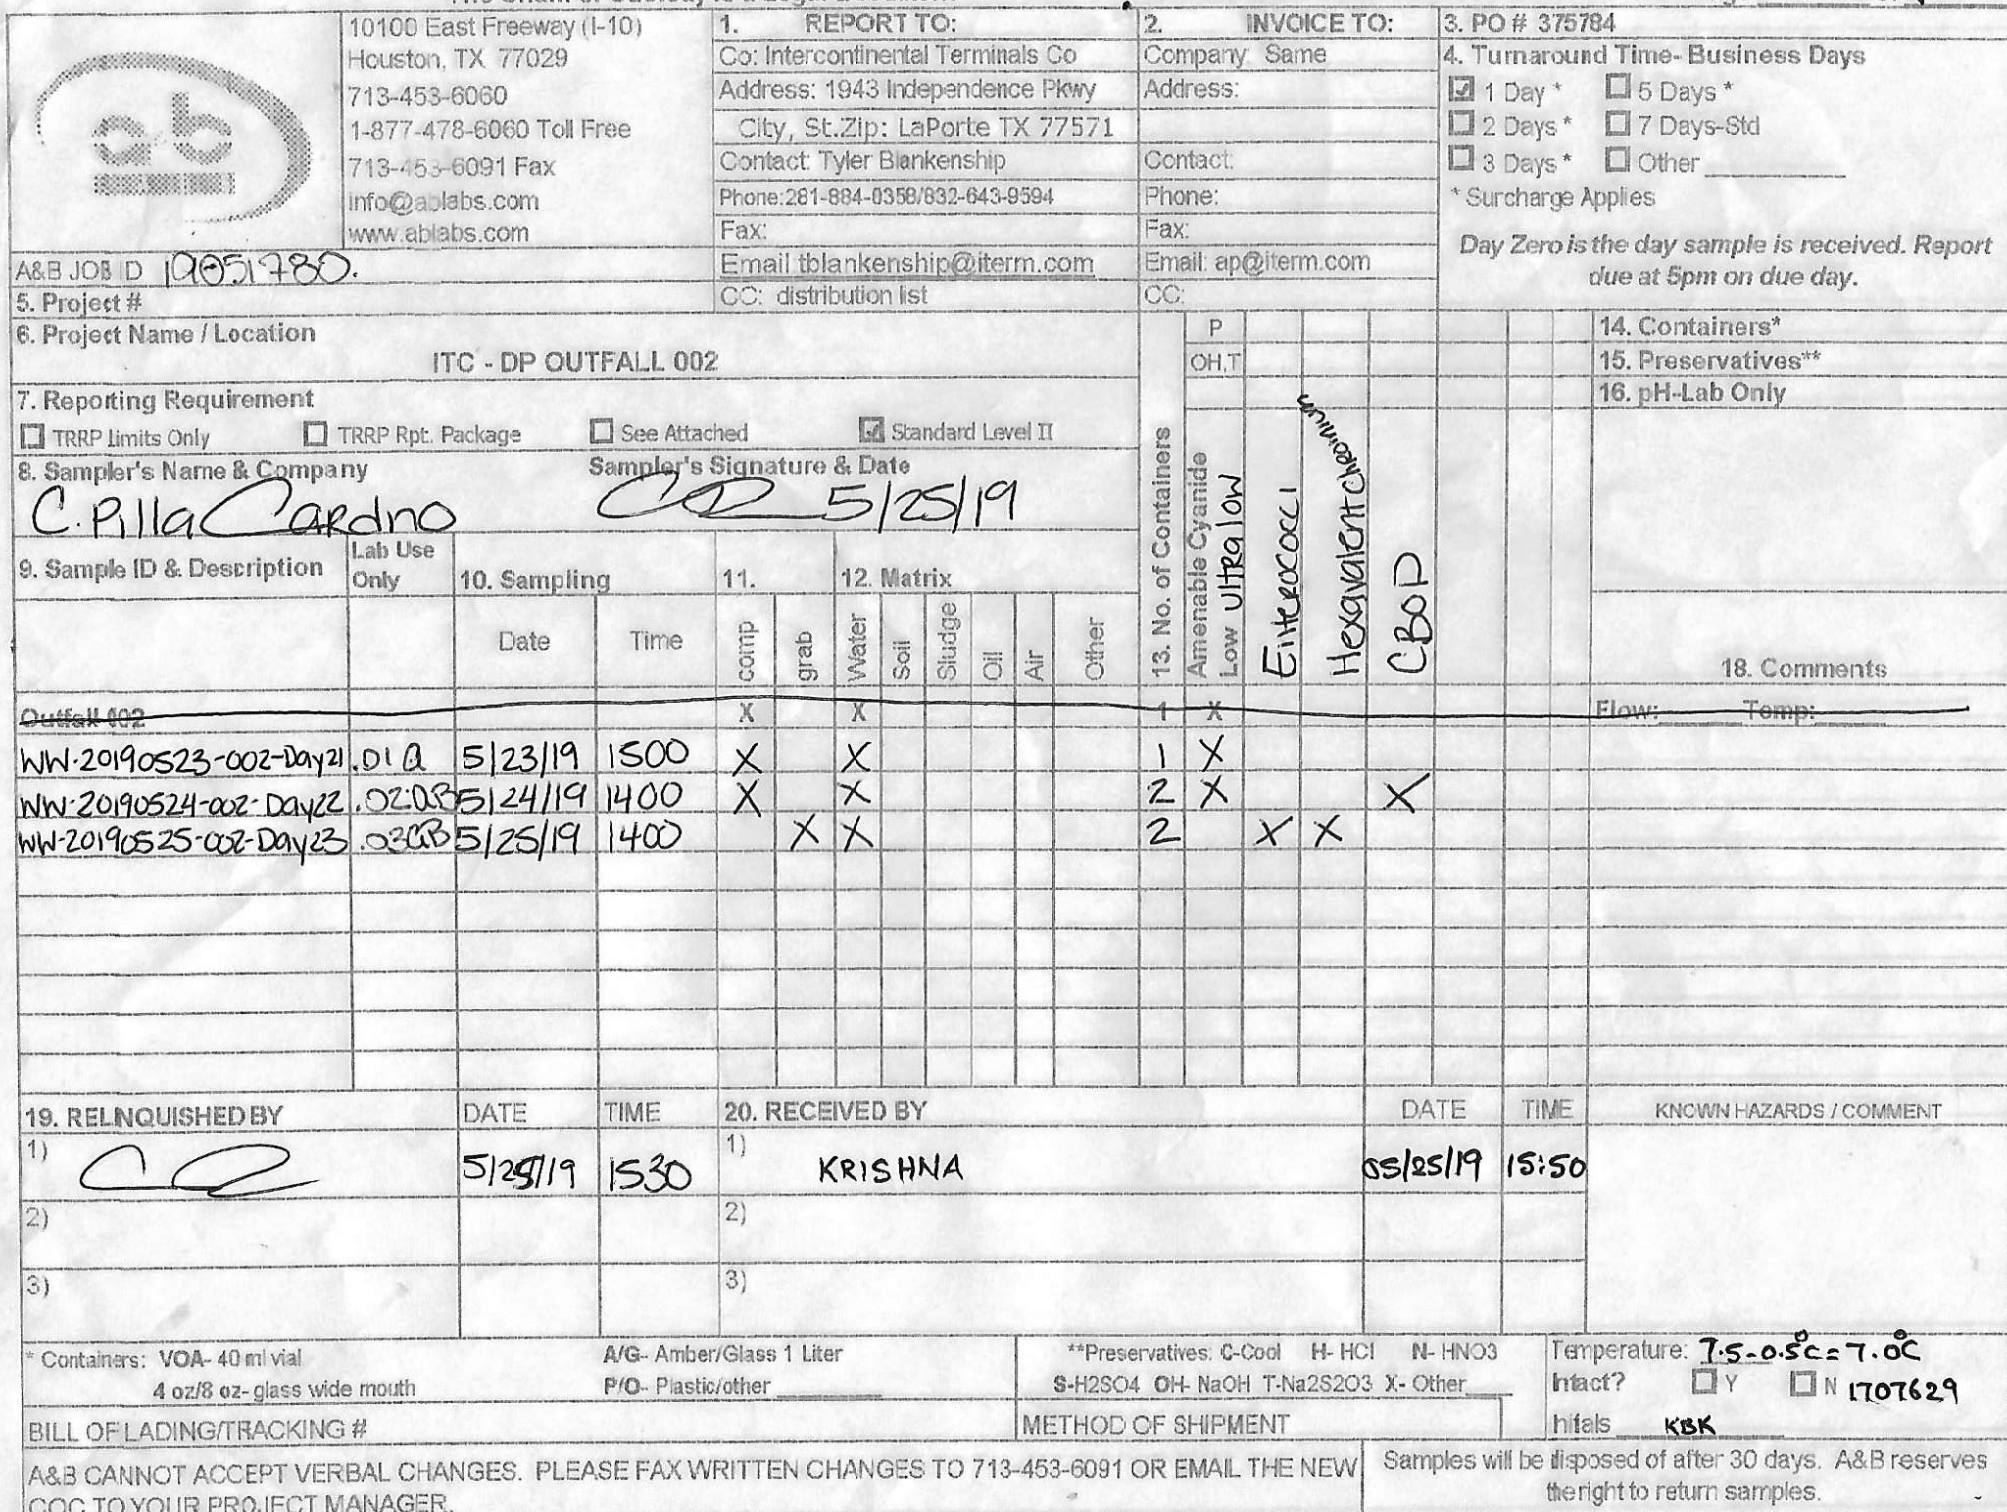 10100 East Freeway (I-10)
Houston, TX 77029
713-453-6060
1-877-478-6060 Toll Free
713-453-6091 Fax
info@ablabs.com
www.ablabs.com
ab
A&B JOB ID 19051780.
1. REPORT TO:
Co: Intercontinental Terminals Co
Address: 1943 Independence Pkwy
City, St.Zip: LaPorte TX 77571
Contact: Tyler Blankenship
Phone:281-884-0358/832-643-9594
Fax:
Email tblankenship@iterm.com
CC: distribution list
2. INVOICE TO:
Company: Same
Address:
Contact:
Phone:
Fax:
Email: ap@iterm.com
CC:
3. PO # 375784
4. Turnaround Time- Business Days
1 Day * 5 Days *
2 Days * 7 Days-Std
3 Days * Other
* Surcharge Applies
Day Zero is the day sample is received. Report
due at 5pm on due day.
5. Project #
6. Project Name / Location
ITC - DP OUTFALL 002
7. Reporting Requirement
TRRP Limits Only TRRP Rpt. Package See Attached Standard Level II
8. Sampler's Name & Company Sampler's Signature & Date
C. Pilla Cardno 5/25/19
P
OH,T
14. Containers*
15. Preservatives**
16. pH-Lab Only
9. Sample ID & Description Lab Use Only 10. Sampling 11. 12. Matrix
Date Time comp grab Water Soil Sludge Oil Air Other
13. No. of Containers
Amenable Cyanide
Low Ultra low
Enterococci
Hexavalent Chromium
CBOD
18. Comments
Outfall 002 X X 1 X Flow: Temp:
WW-20190523-002-Day21 .01a 5/23/19 1500 X X 1 X
WW-20190524-002-Day22 .02aB 5/24/19 1400 X X 2 X X
WW-20190525-002-Day23 .03aB 5/25/19 1400 X X 2 X X
19. RELNQUISHED BY DATE TIME 20. RECEIVED BY DATE TIME KNOWN HAZARDS / COMMENT
1) 5/25/19 1530 1) KRISHNA 05/25/19 15:50
2) 2)
3) 3)
* Containers: VOA- 40 ml vial A/G- Amber/Glass 1 Liter
4 oz/8 oz- glass wide mouth P/O- Plastic/other
**Preservatives: C-Cool H- HCl N- HNO3
S-H2SO4 OH- NaOH T-Na2S2O3 X- Other
Temperature: 7.5-0.5°C=7.0°C
Intact? Y N 1707629
Initials KBK
BILL OF LADING/TRACKING # METHOD OF SHIPMENT
A&B CANNOT ACCEPT VERBAL CHANGES. PLEASE FAX WRITTEN CHANGES TO 713-453-6091 OR EMAIL THE NEW
COC TO YOUR PROJECT MANAGER.
Samples will be disposed of after 30 days. A&B reserves
the right to return samples.